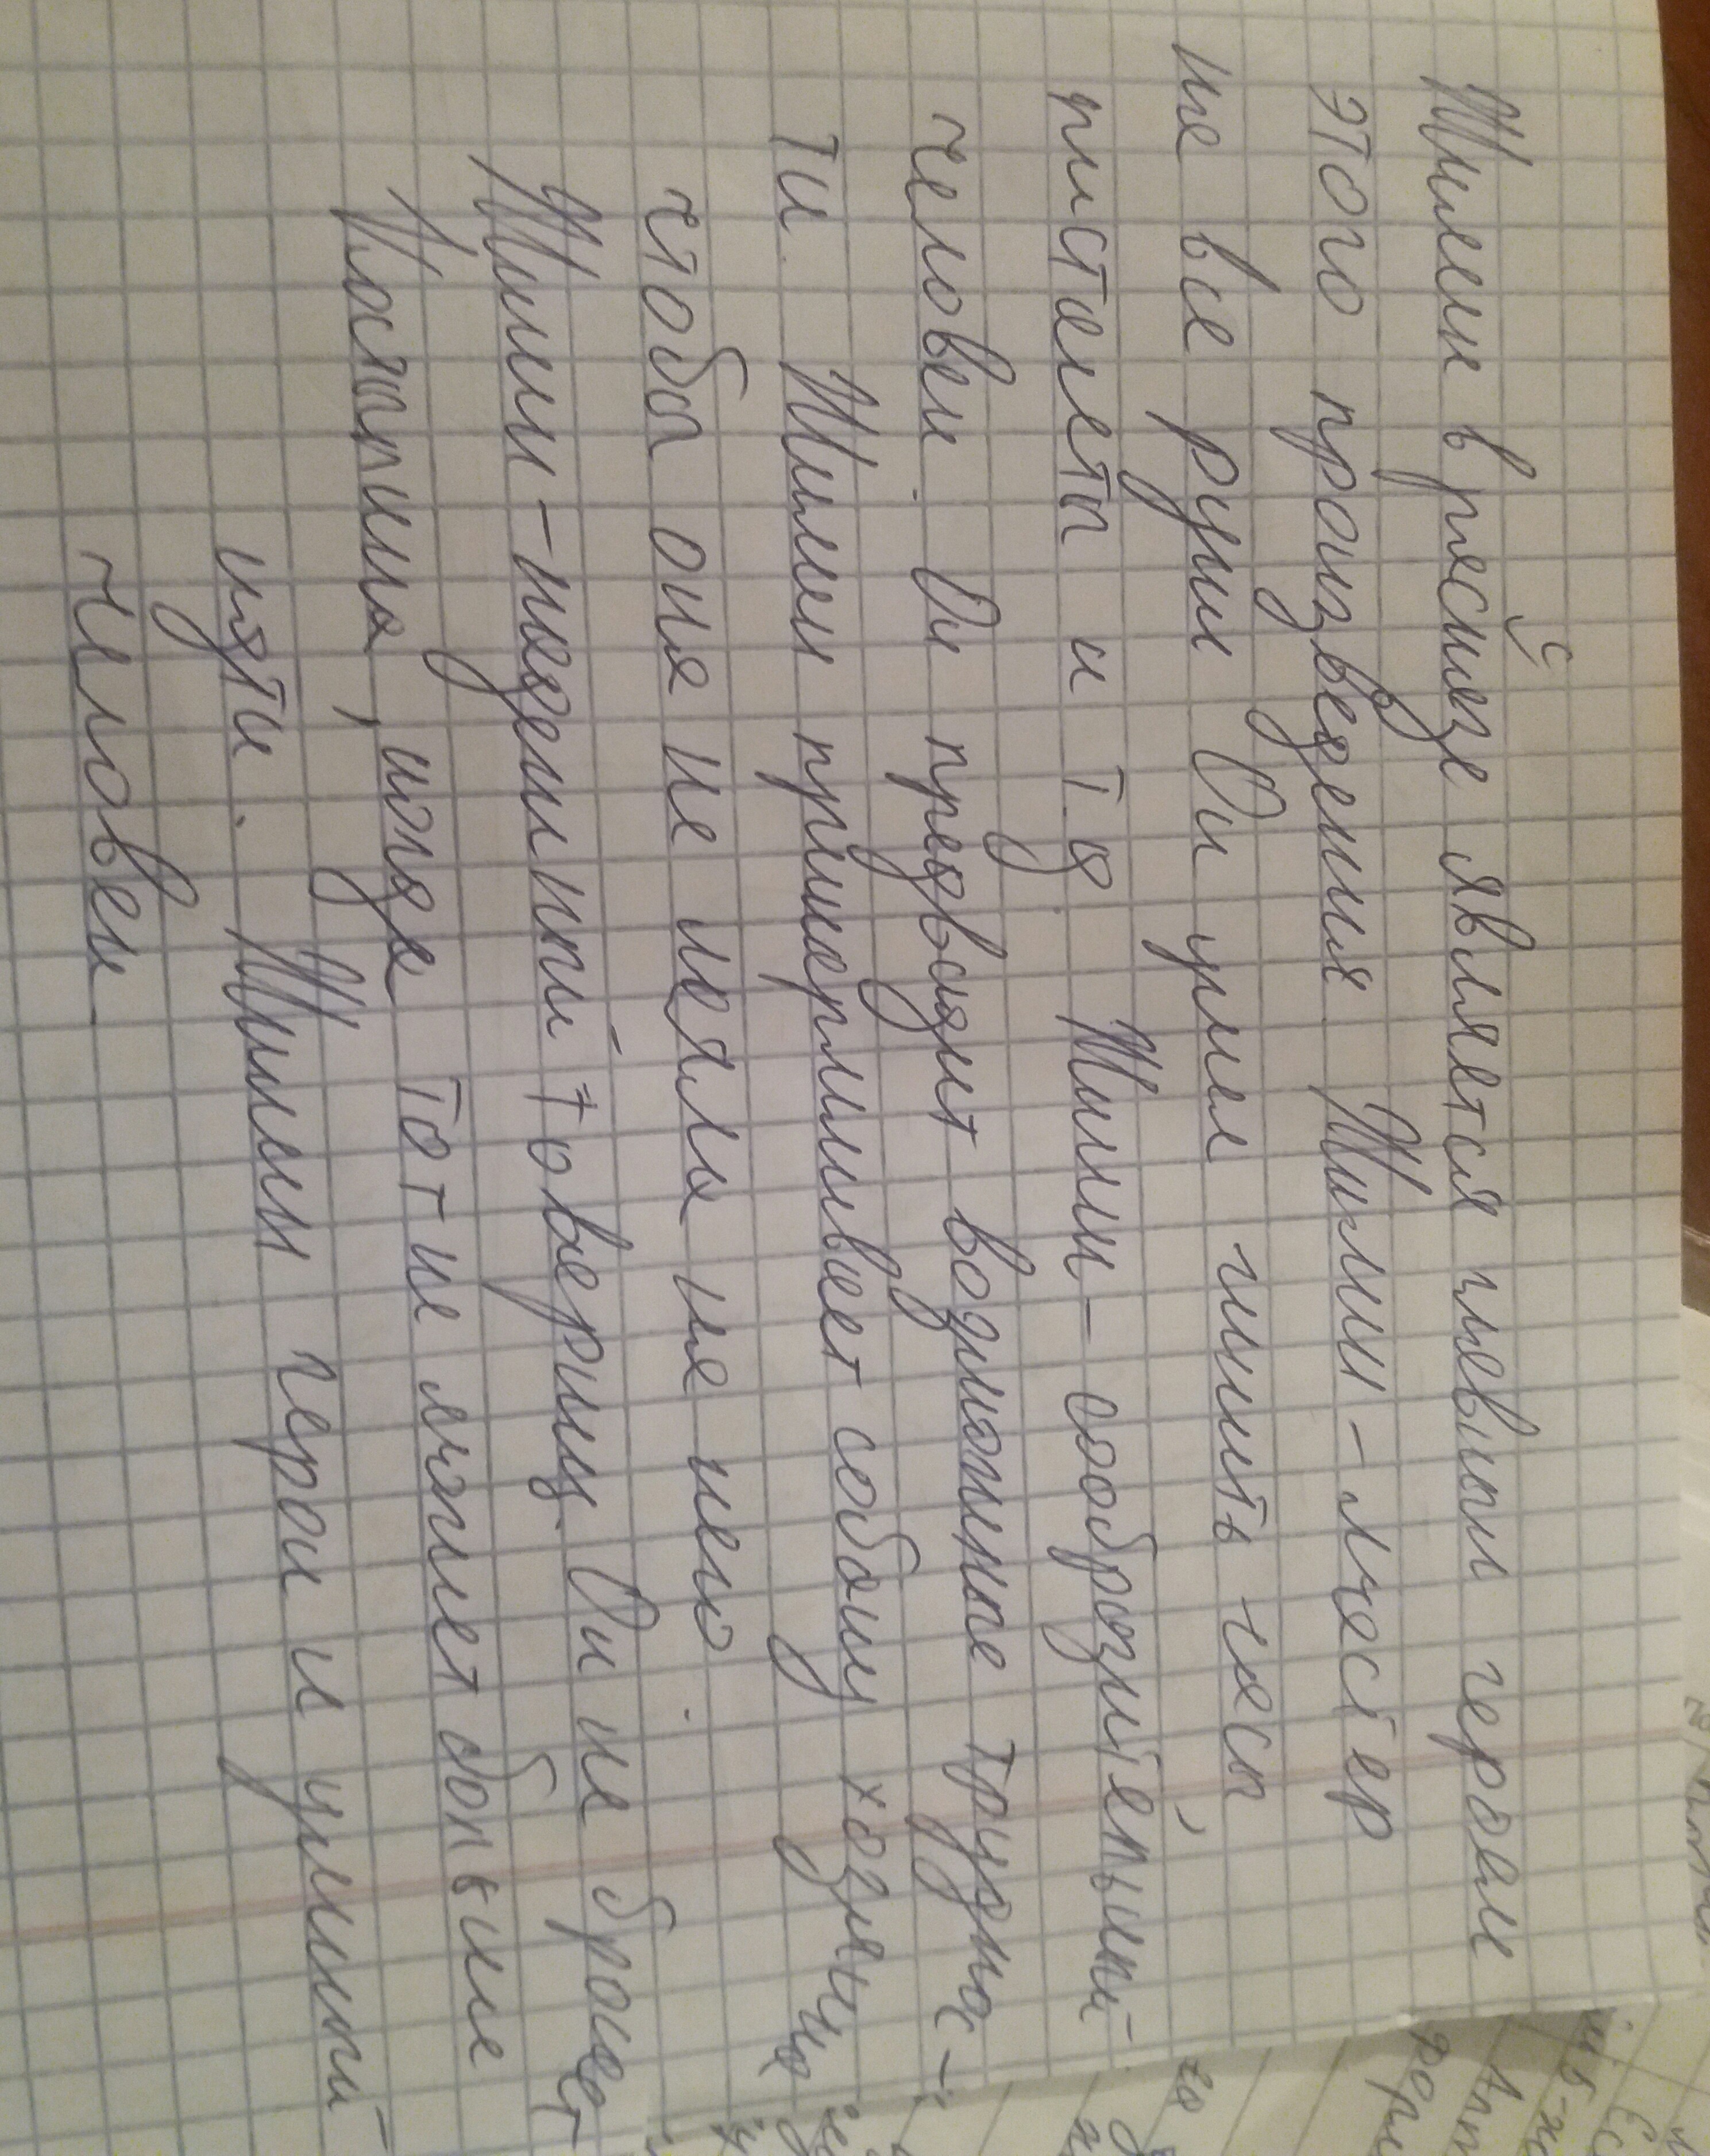 Жилин в рассказе является главным героем
этого произведения. Жилин - мастер
на все руки. Он умел чинить часы
пистолеты и т.д. Жилин - сообразительный
человек. Он предвидит возможные труднос-
ти. Жилин прикармливает собаку хозяина
чтобы она не лаяла на него.
Жилин - надежный товарищ. Он не бросает
Костылина, когда тот не может больше
идти. Жилин герой и умный
человек.